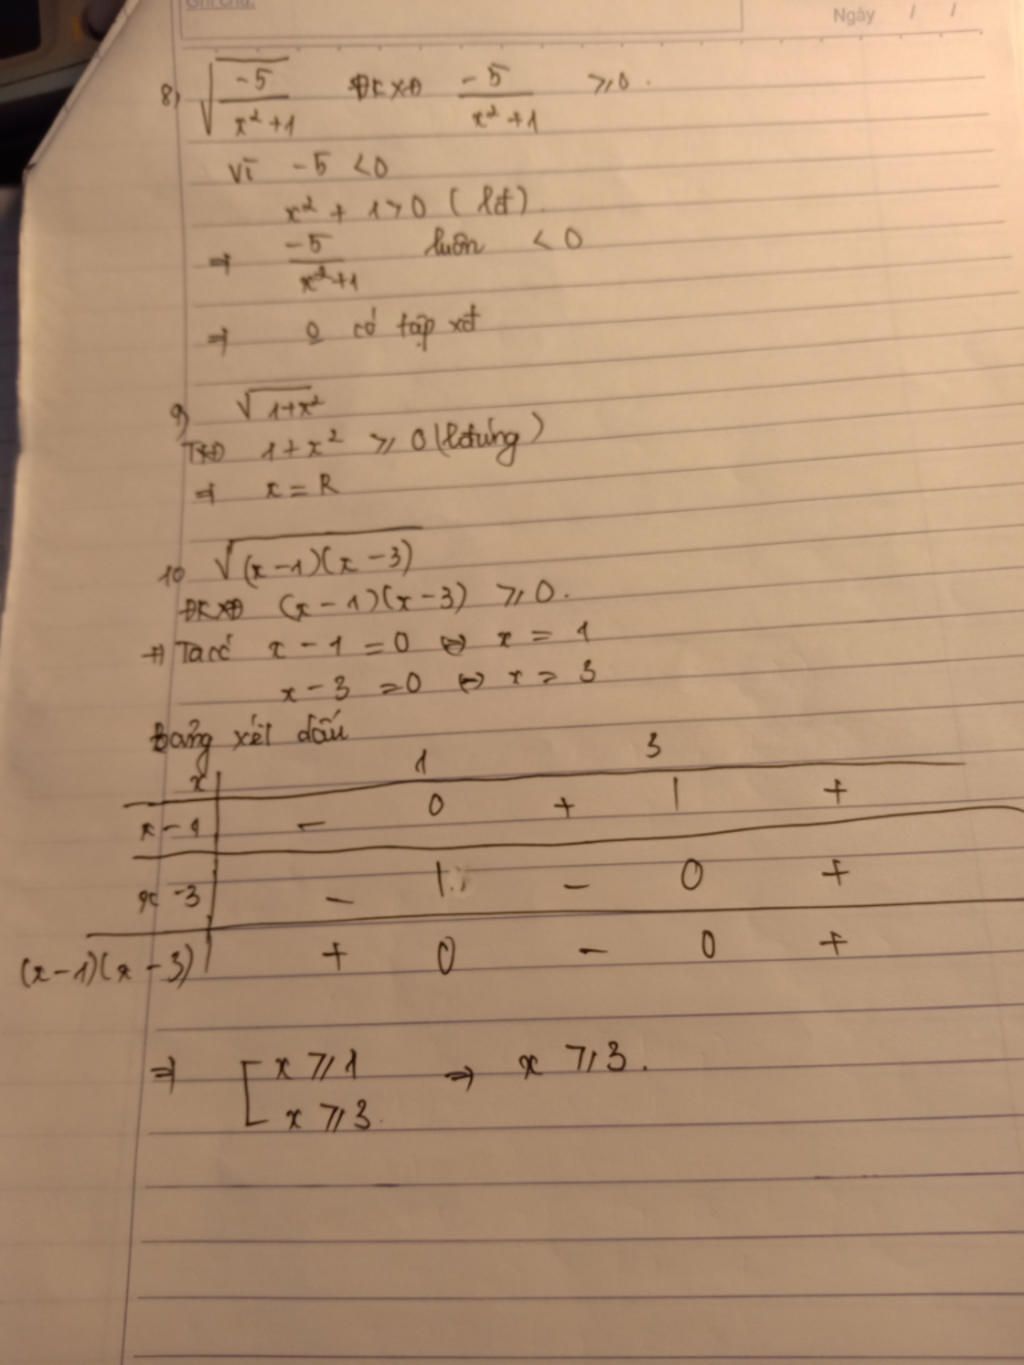 Ghi chú:
Ngày / /
8) √(-5/(x²+1)) ĐKXĐ -5/(x²+1) ⩾0.
Vì -5 <0
x² + 1>0 (lđ)
⇒ -5/(x²+1) luôn < 0
⇒ có tập xđ
9) √(1+x²)
TXĐ 1+x² ⩾ 0 (lđúng)
⇒ x = R
10 √((x-1)(x-3))
ĐKXĐ (x-1)(x-3) ⩾0.
Ta có x - 1 = 0 ⇔ x = 1
x - 3 = 0 ⇔ x = 3
Bảng xét dấu
x | 1 3
x - 1 | - 0 + | +
x - 3 | - | - 0 +
(x-1)(x-3) | + 0 - 0 +
⇒ [ x ⩾ 1 ⇒ x ⩾ 3.
x ⩾ 3.